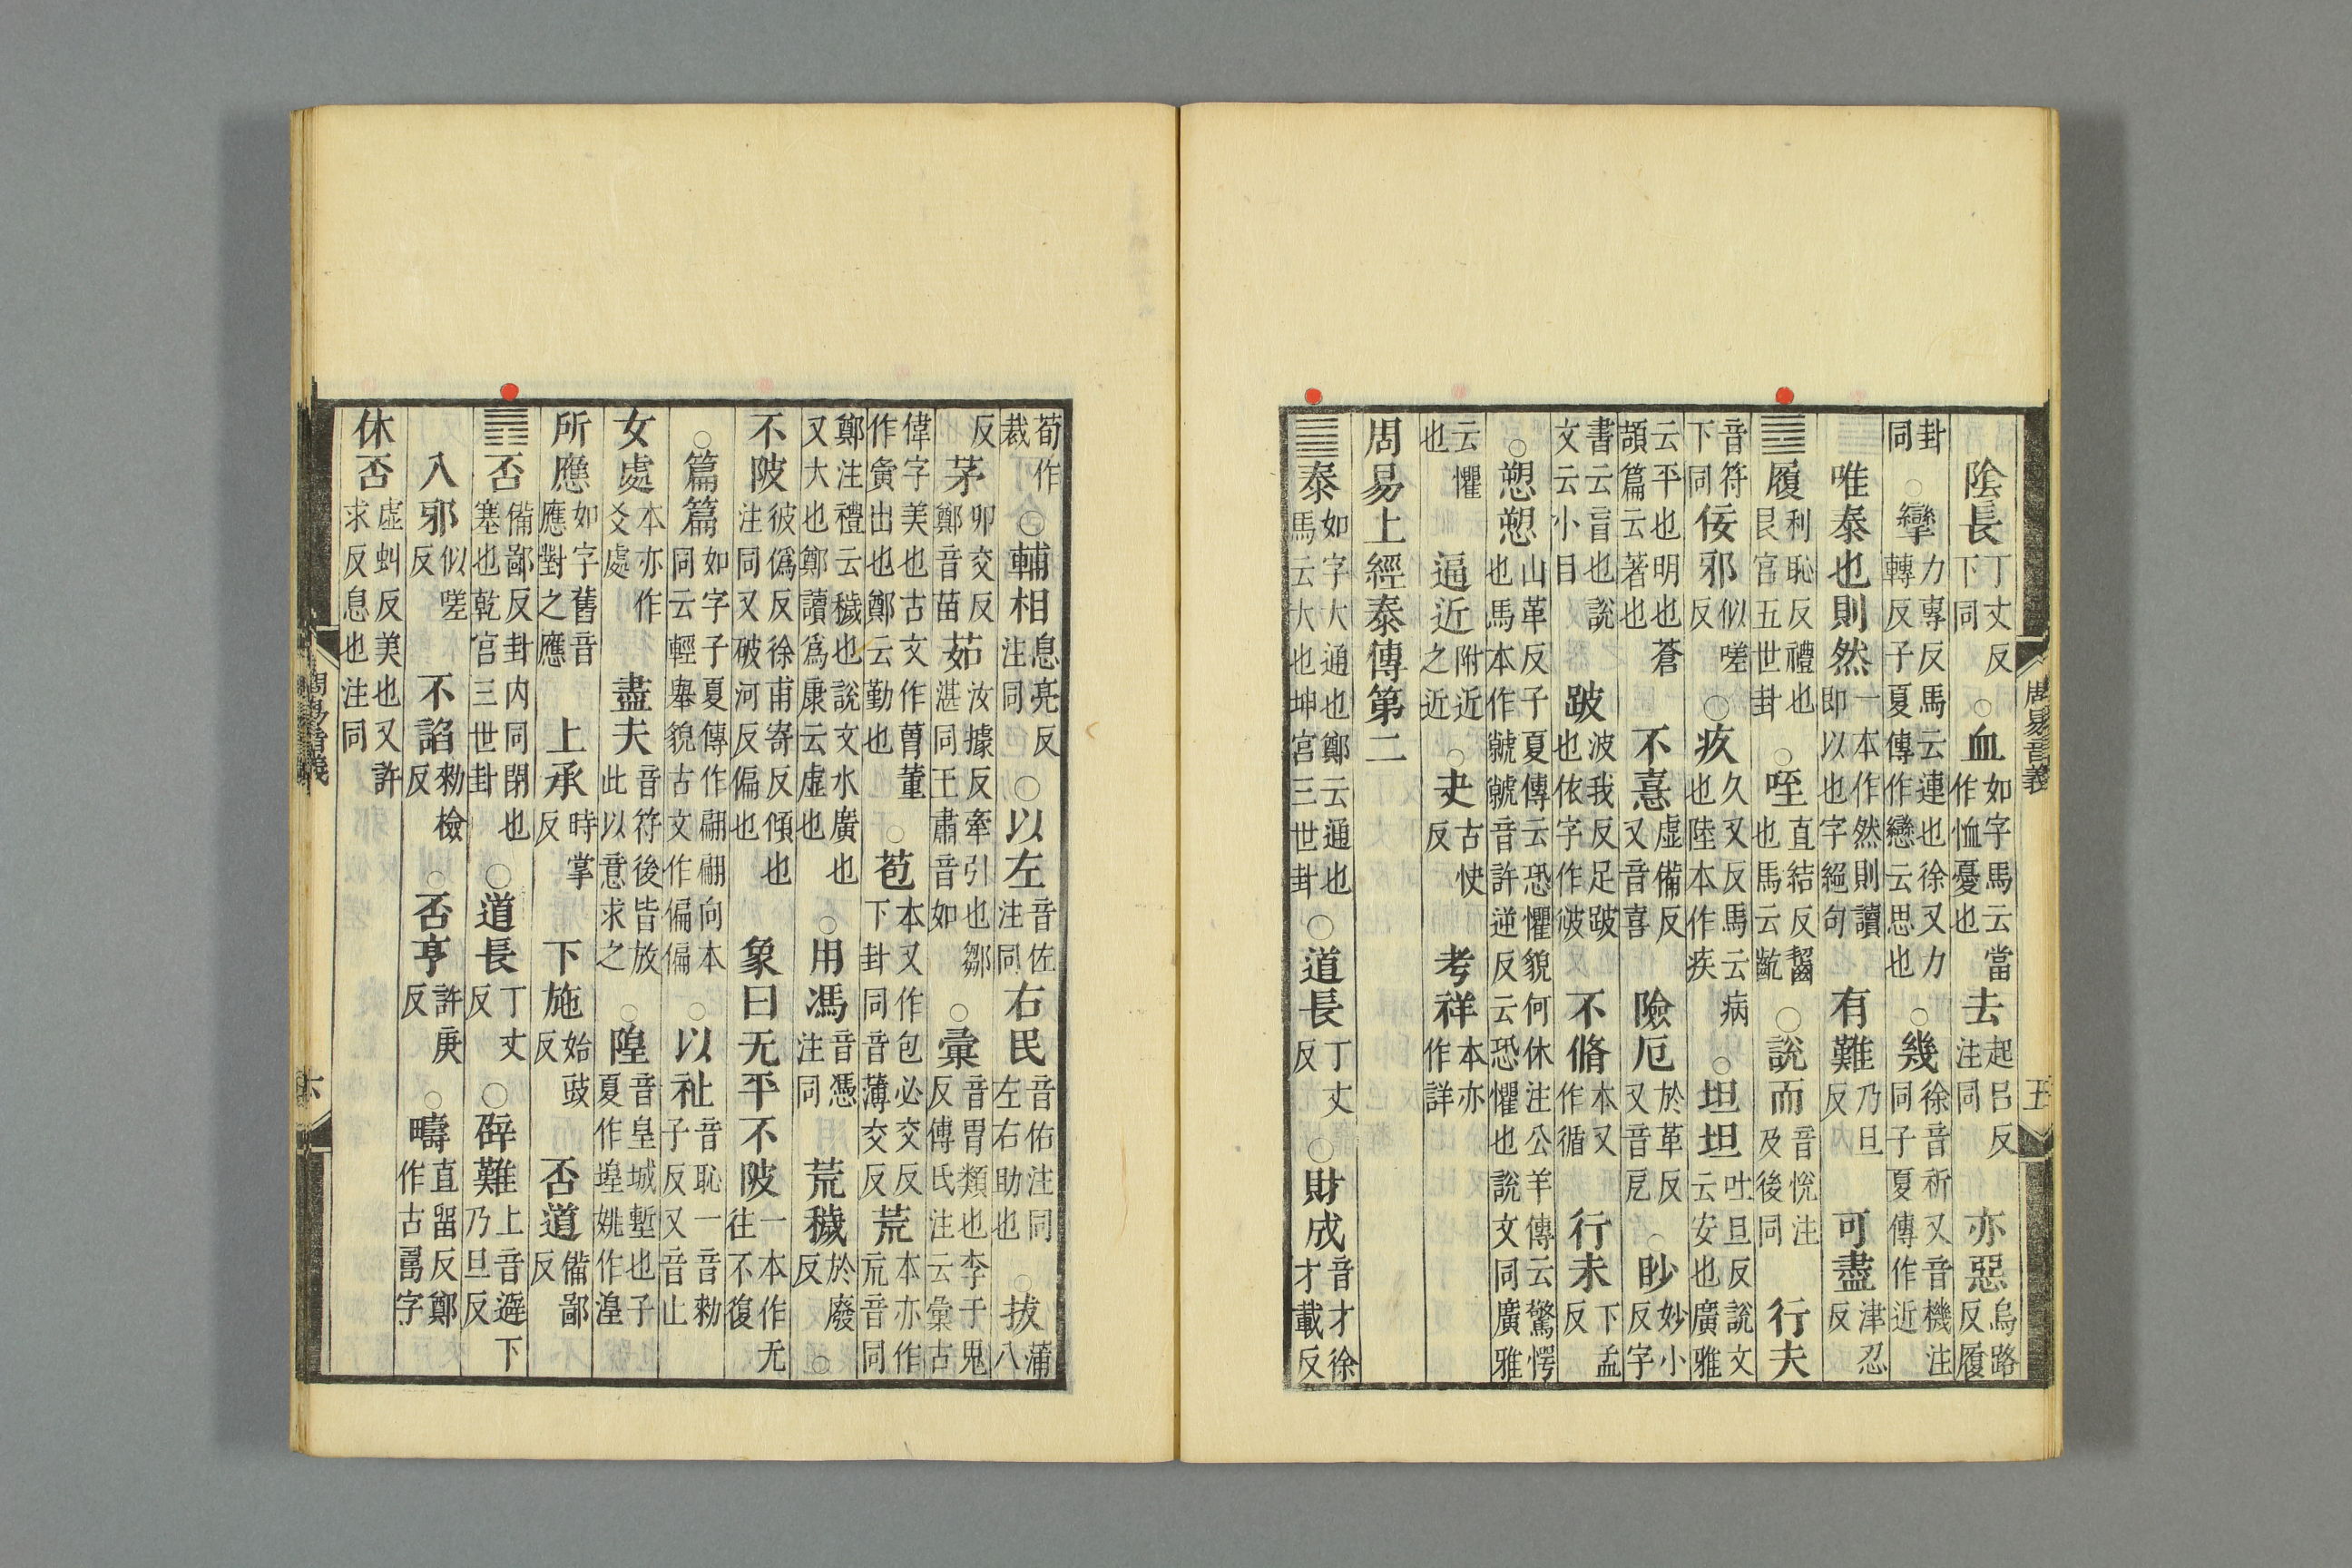 周易音義
五
陰長丁丈反下同○血如字馬云當作恤憂也去起呂反注同亦惡烏路反履
卦同○攣力專反馬云連也徐又力轉反子夏傳作戀云思也○幾徐音祈又音機注同子夏傳作近
唯泰也則然一本作然則讀即以也字絕句有難乃旦反可盡津忍反
䷉履利恥反禮也艮宮五世卦○咥直結反齧也馬云齕○說而音悅注及後同行夫
音符下同佞邪似嗟反○疚久又反馬云病也陸本作疾○坦坦吐旦反說文云安也廣雅
云平也明也蒼頡篇云著也不憙虛備反又音喜險厄於革反又音戹○眇妙小反字
書云盲也說文云小目跛波我反足跛也依字作不脩本又作循行未下孟反
○愬愬山革反子夏傳云恐懼貌何休注公羊傳云驚愕也馬本作虩虩音許逆反云恐懼也說文同廣雅
云懼也逼近附近之近○夬古快反考祥本亦作詳
周易上經泰傳第二
䷊泰如字大通也鄭云通也馬云大也坤宮三世卦○道長丁丈反○財成音才徐才載反
荀作裁○輔相息亮反注同○以左音佐注同右民音佑注同左右助也○拔蒲八
反茅卯交反鄭音苗茹汝據反牽引也鄒湛同王肅音如○彙音胃類也李于鬼反傅氏注云彙古
偉字美也古文作董作夤出也鄭云勤也○苞本又作包必交反下卦同音薄交反荒本亦作巟音同
鄭注禮云穢也說文水廣也又大也鄭讀爲康云虛也○用馮音憑注同荒穢於廢反○
不陂彼僞反徐甫寄反傾也注同又破河反偏也象曰无平不陂一本作无往不復
○篇篇如字子夏傳作翩翩向本同云輕舉貌古文作偏偏○以祉音恥一音勑子反又音止
女處本亦作爻處盡夫音符後皆放此以意求之○隍音皇城塹也子夏作堭姚作湟
所應如字舊音應對之應上承時掌反下施始豉反否道備鄙反
䷋否備鄙反卦内同閉也塞也乾宮三世卦○道長丁丈反○辟難上音避下乃旦反
入邪似嗟反不諂勑檢反○否亨許庚反○疇直留反鄭作古𠷎字
休否虛虯反美也又許求反息也注同
周易音義
六